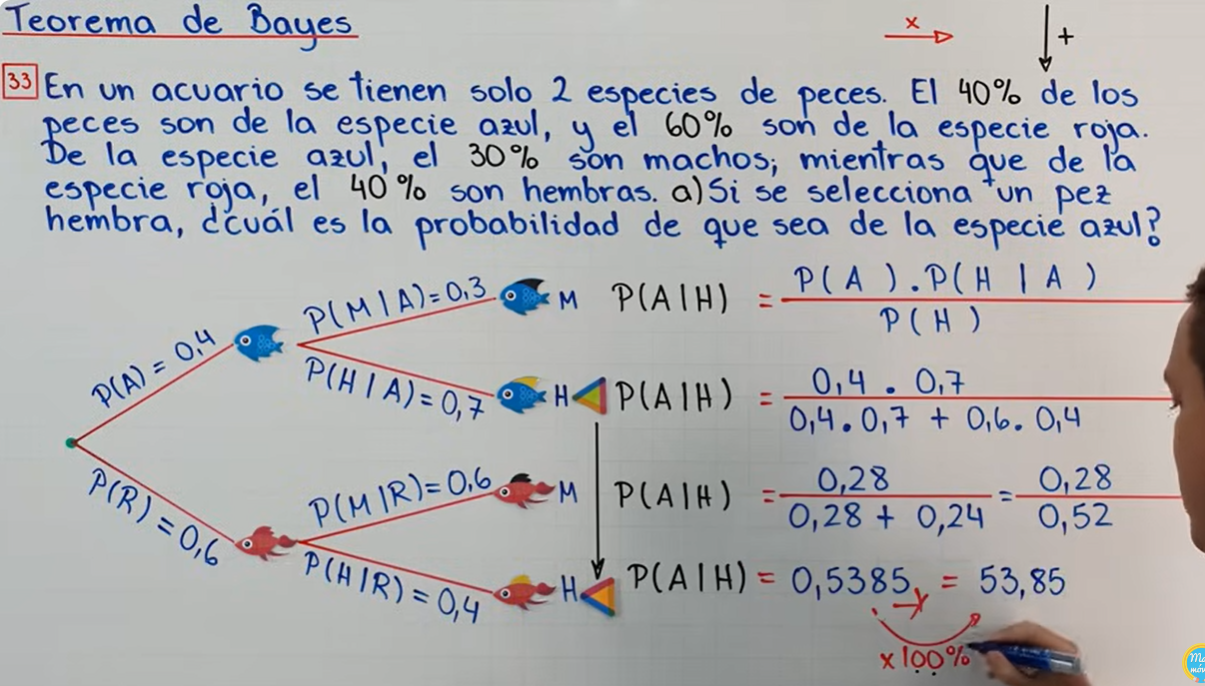 Teorema de Bayes
x
+
33 En un acuario se tienen solo 2 especies de peces. El 40% de los
peces son de la especie azul, y el 60% son de la especie roja.
De la especie azul, el 30% son machos; mientras que de la
especie roja, el 40% son hembras. a) Si se selecciona un pez
hembra, ¿cuál es la probabilidad de que sea de la especie azul?
P(A) = 0,4
P(M|A)=0,3
M
P(H|A)=0,7
H
P(R)=0,6
P(M|R)=0,6
M
P(H|R)=0,4
H
P(A|H) = P(A).P(H|A)
P(H)
P(A|H) = 0,4 . 0,7
0,4.0,7 + 0,6.0,4
P(A|H) = 0,28 = 0,28
0,28 + 0,24 0,52
P(A|H) = 0,5385 = 53,85
x100%